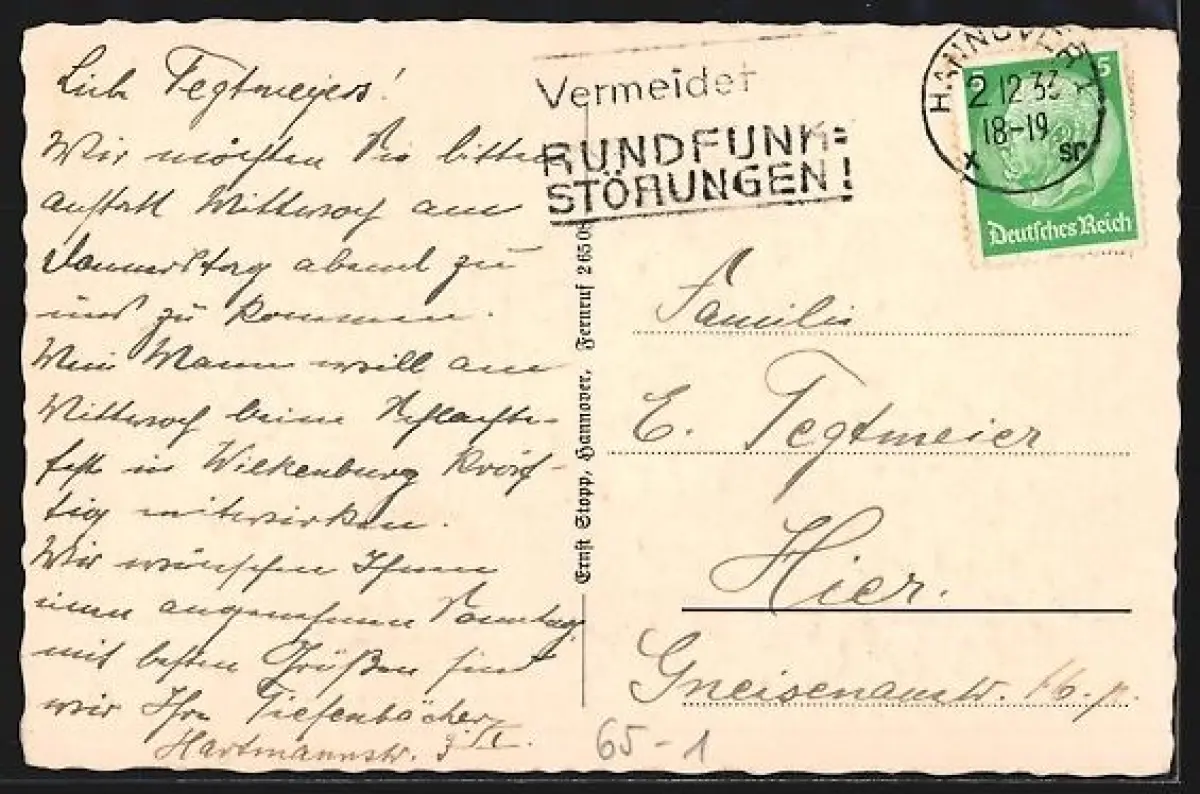 Liebe Tegtmeyers!
Wir möchten Sie bitten
anstatt Mittwoch am
Donnerstag abend zu
uns zu kommen.
Mein Mann will am
Mittwoch beim Schlachte-
fest in Wilkenburg kräf-
tig mitwirken.
Wir wünschen Ihnen
einen angenehmen Sonntag
mit besten Grüßen sind
wir Ihre Tiefenbächer
Hartmannstr.
Vermeidet
RUNDFUNK=
STÖRUNGEN!
HANNOVER
2 12 33
18-19
x sr
5
Deutsches Reich
Ernst Stopp, Hannover, Fernruf 2650
Familie
E. Tegtmeier
Hier.
Gneisenaustr.
65-1